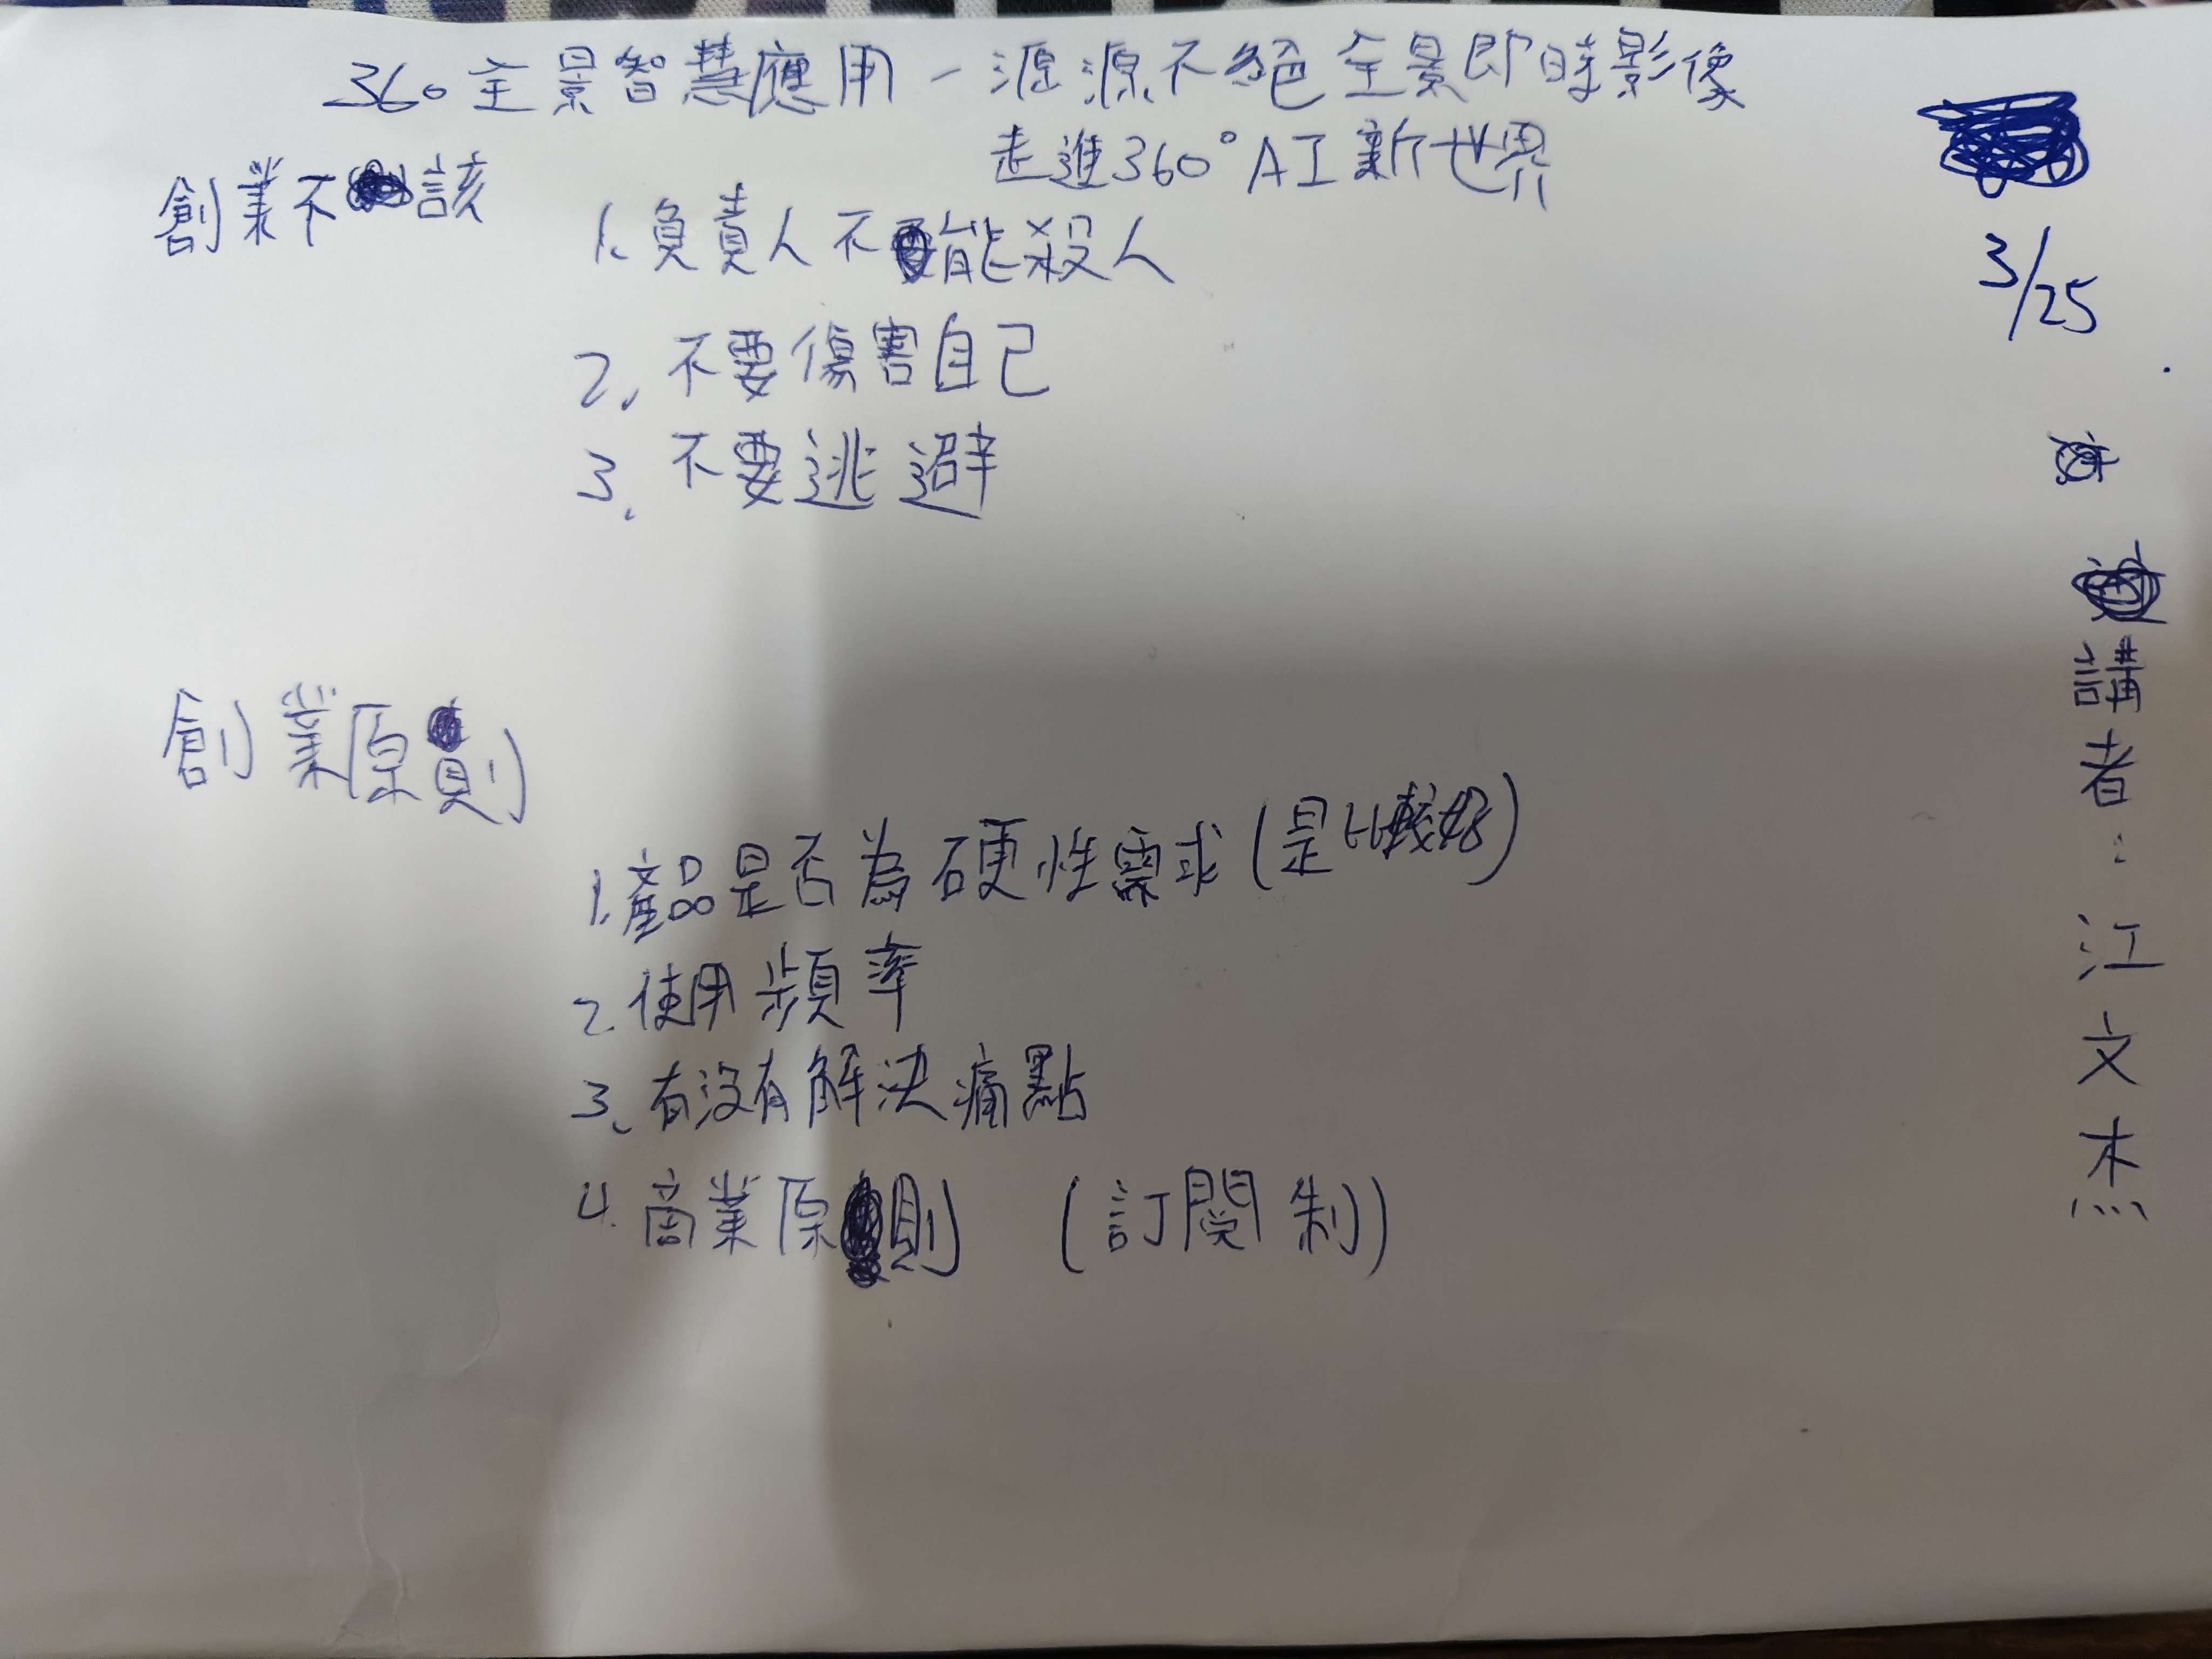 360全景智慧應用－源源不絕全景即時影像
走進360°AI新世界
3/25
創業不該
1.負責人不能殺人
2.不要傷害自己
3.不要逃避
創業原則
1.產品是否為硬性需求(是比較好)
2.使用頻率
3.有沒有解決痛點
4.商業原則 (訂閱制)
講者：江文杰